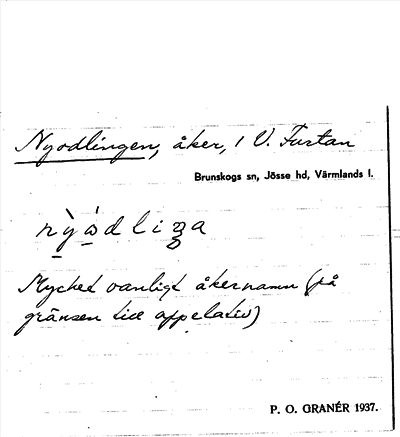 Nyodlingen, åker, i V. Furtan
Brunskogs sn, Jösse hd, Värmlands l.
nỳὼdliŋa
Mycket vanligt åkernamn (på
gränsen till appelativ)
P. O. GRANÉR 1937.